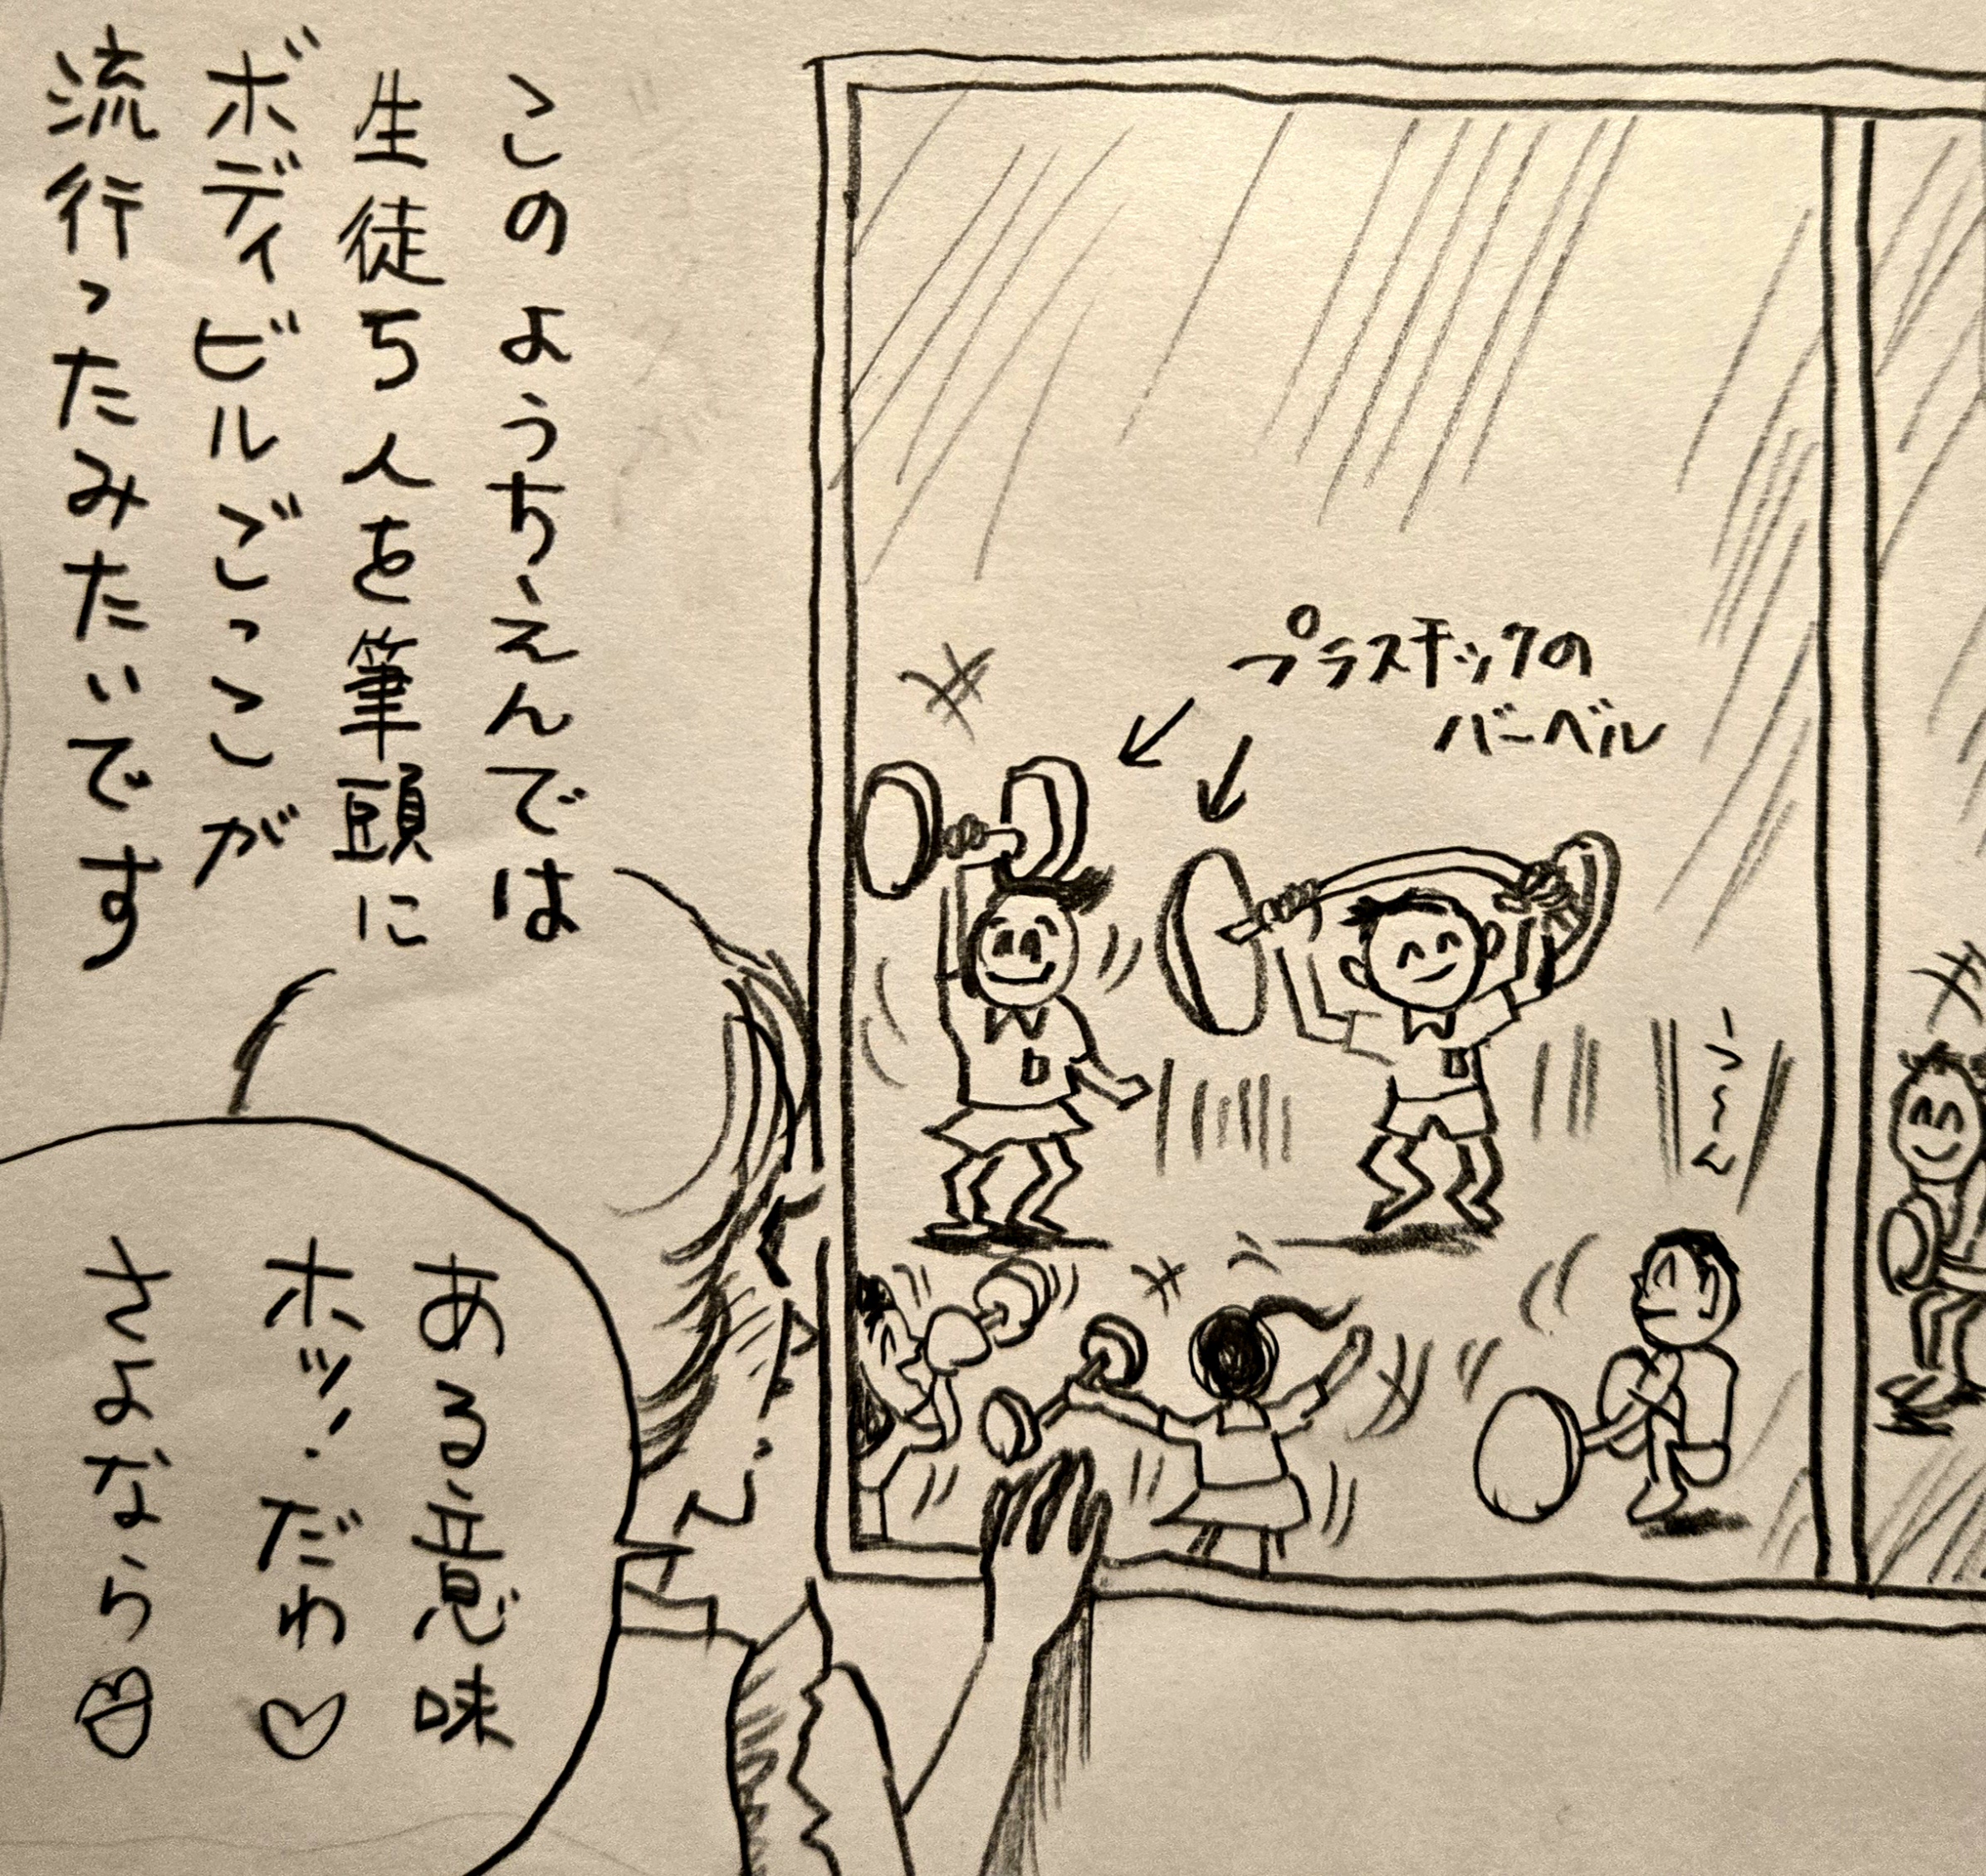 このようちえんでは
生徒5人を筆頭に
ボディビルごっこが
流行ったみたいです
プラスチックの
バーベル
う〜ん
ある意味
ホッ!だわ♡
さよなら